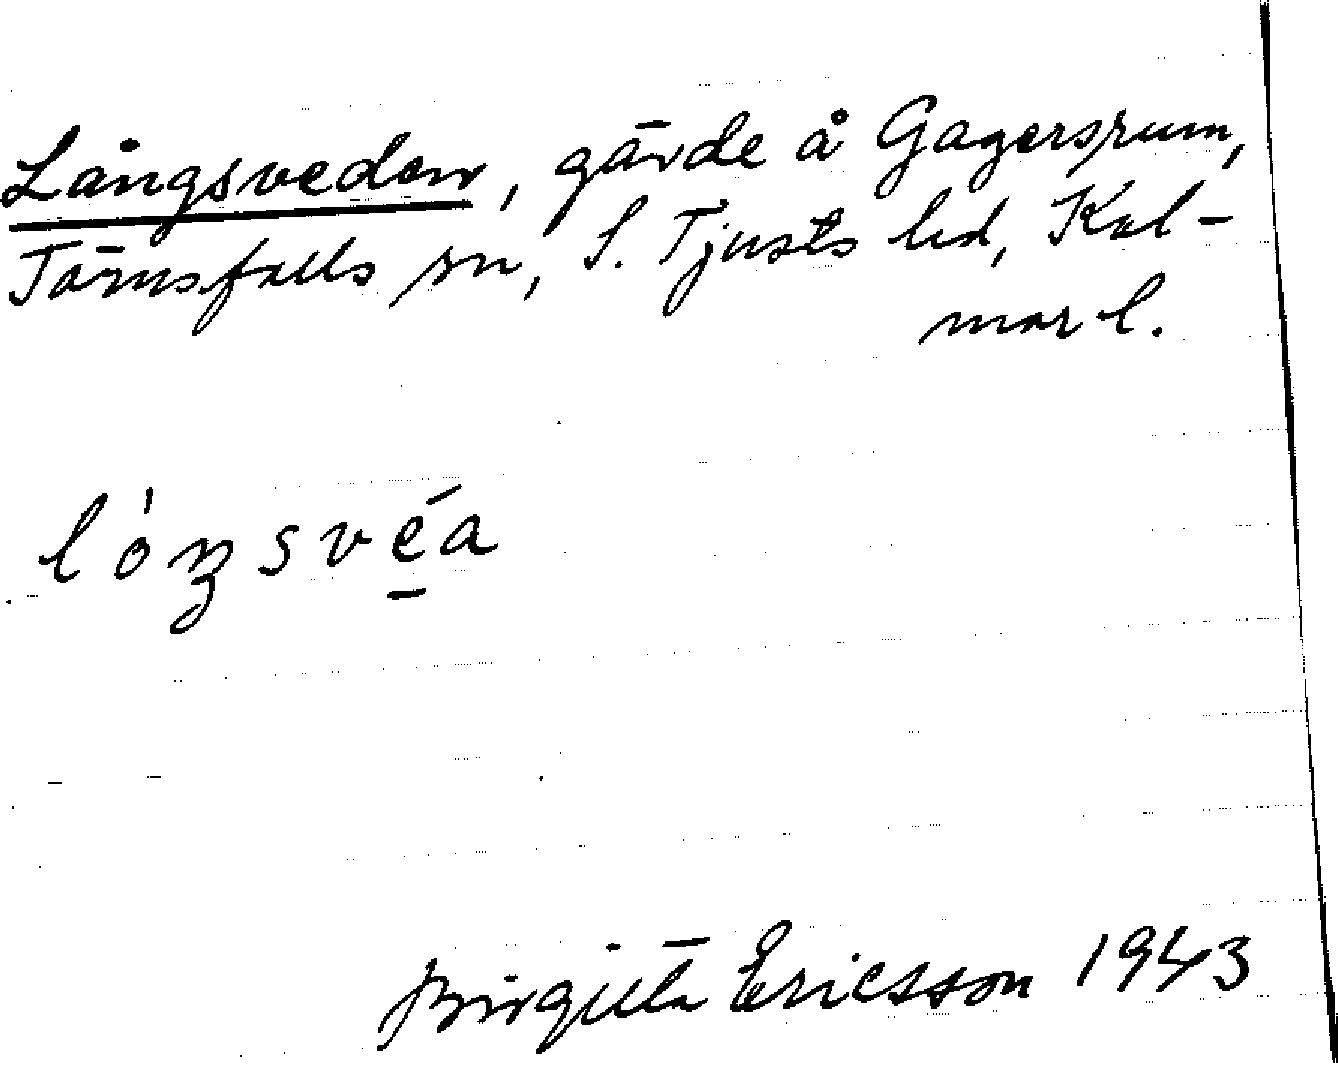 Långsveden, gärde å Gagersrum,
Törnsfalls sn, S. Tjusts hd, Kal-
mar l.
lóŋsvé̱a
Birgitta Ericsson 1943